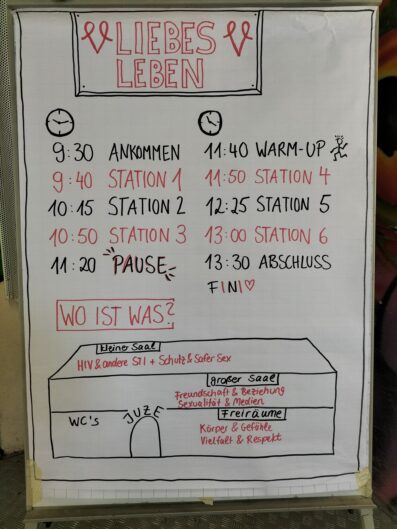 LIEBES
LEBEN
9:30 ANKOMMEN
9:40 STATION 1
10:15 STATION 2
10:50 STATION 3
11:20 PAUSE
11:40 WARM-UP
11:50 STATION 4
12:25 STATION 5
13:00 STATION 6
13:30 ABSCHLUSS
FINI♡
WO IST WAS?
kleiner Saal
HIV & andere STI + Schutz & Safer Sex
großer Saal
Freundschaft & Beziehung
Sexualität & Medien
WC's
JUZE
Freiräume
Körper & Gefühle
Vielfalt & Respekt